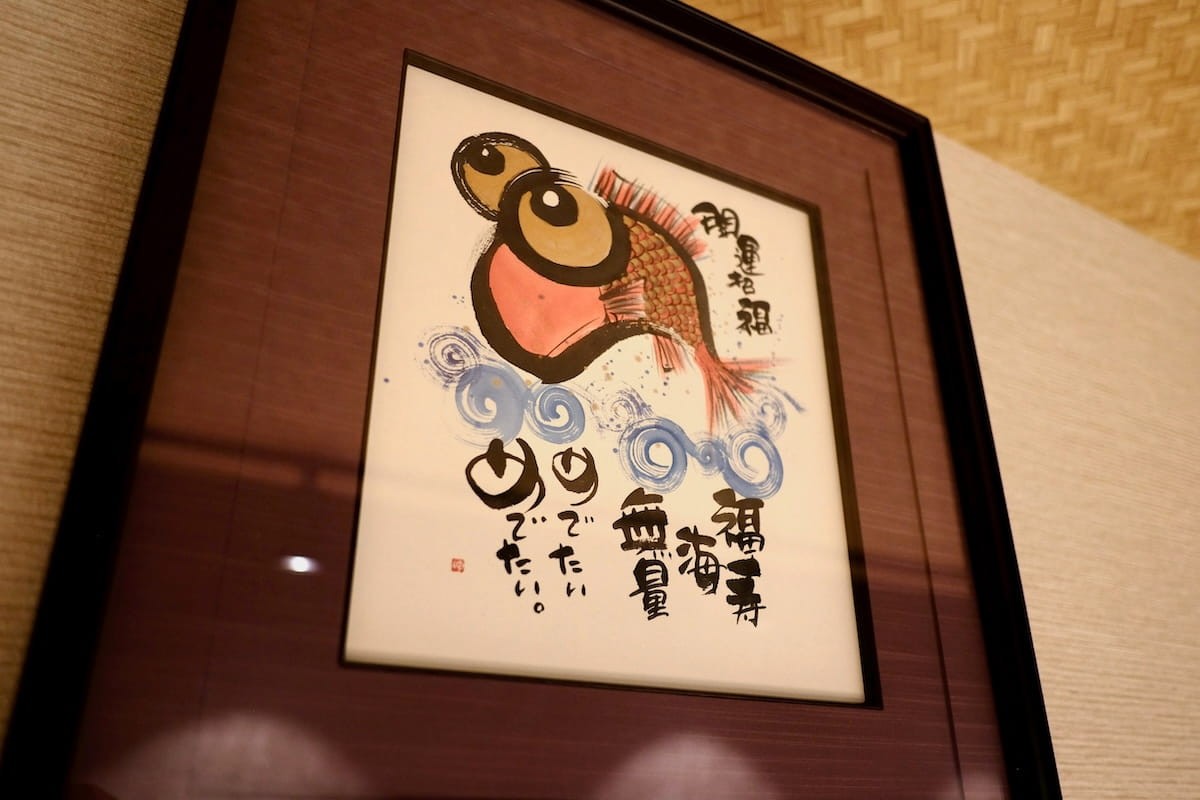 開運招福
福寿
海
無量
めでたい
めでたい。